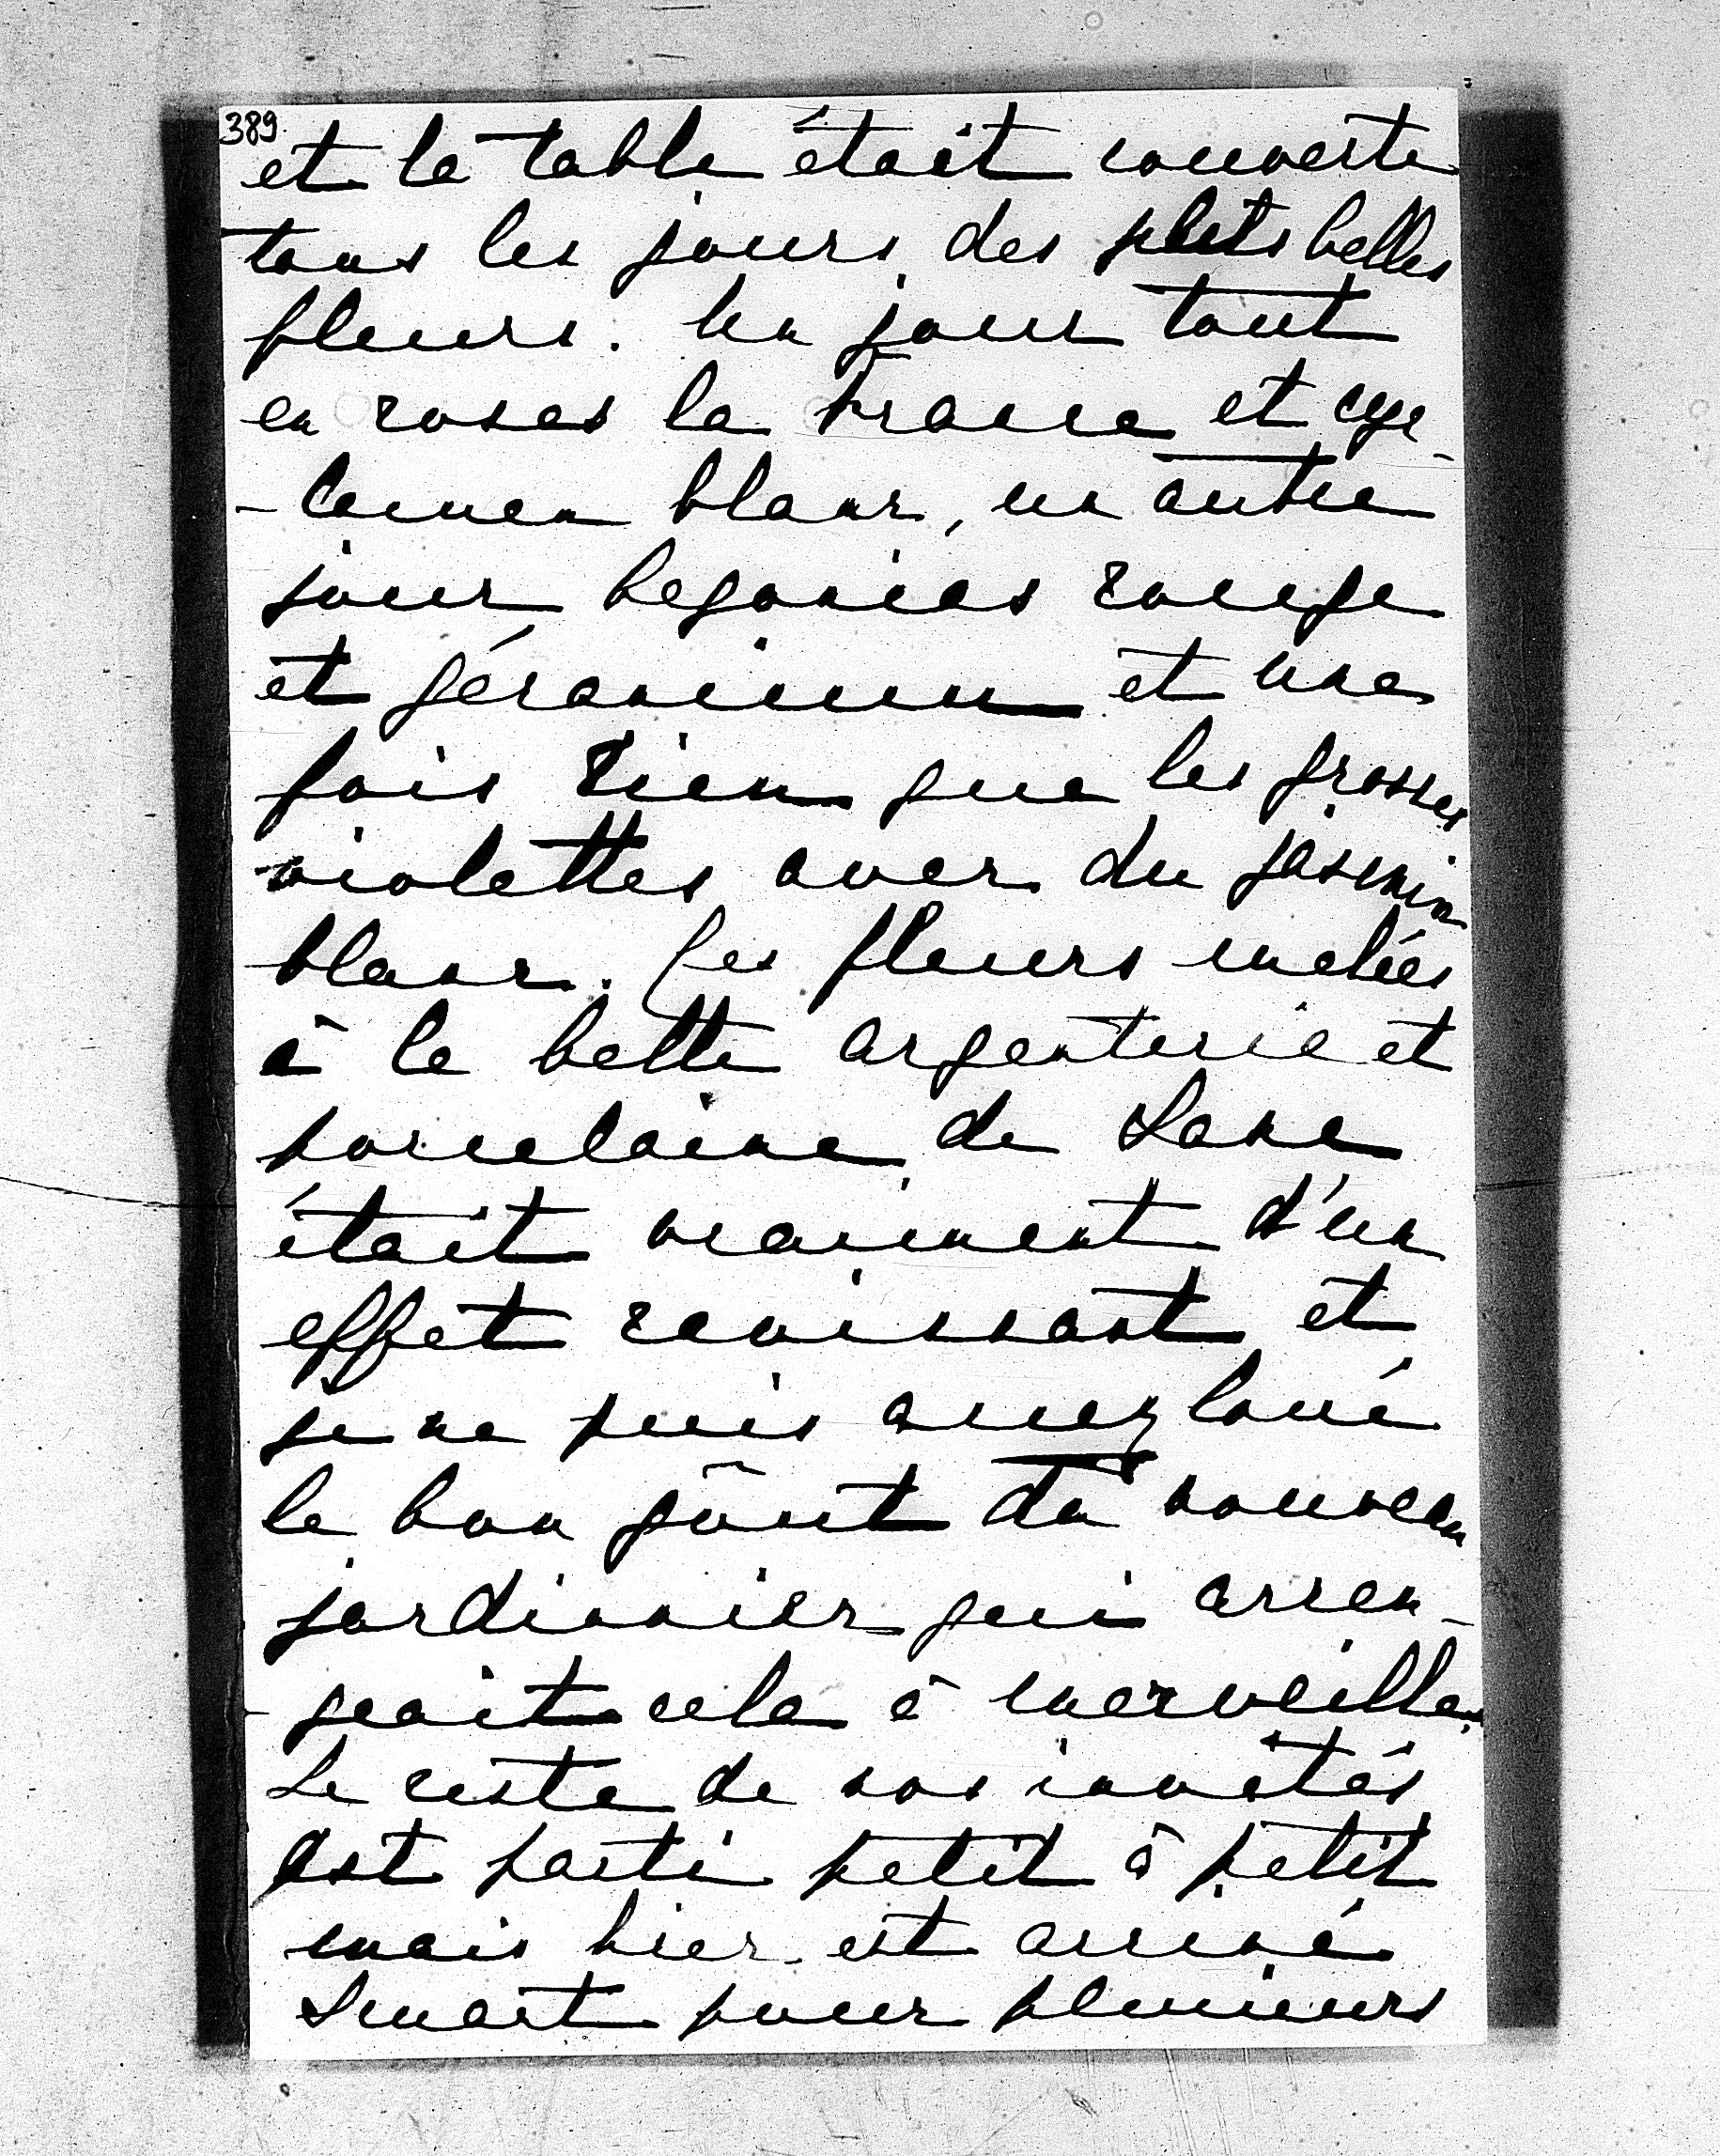 389.
et la table était couverte
tous les jours des plus belles
fleurs. Un jour tout
en roses la France et cyc-
-lamen blanc, un autre
jour begonias rouge
et géranium et une
fois rien que les grosses
violettes avec du jasmin
blanc. Les fleurs melées
à la belle argenterie et
porcelaine de Saxe
était vraiment d'un
effet ravissant et
je ne puis assez loué
le bon goût du nouveau
jardinnier qui arren-
-geait cela à merveille.
Le reste de nos invités
est parti petit à petit
mais hier est arrivé
Smart pour plusieurs